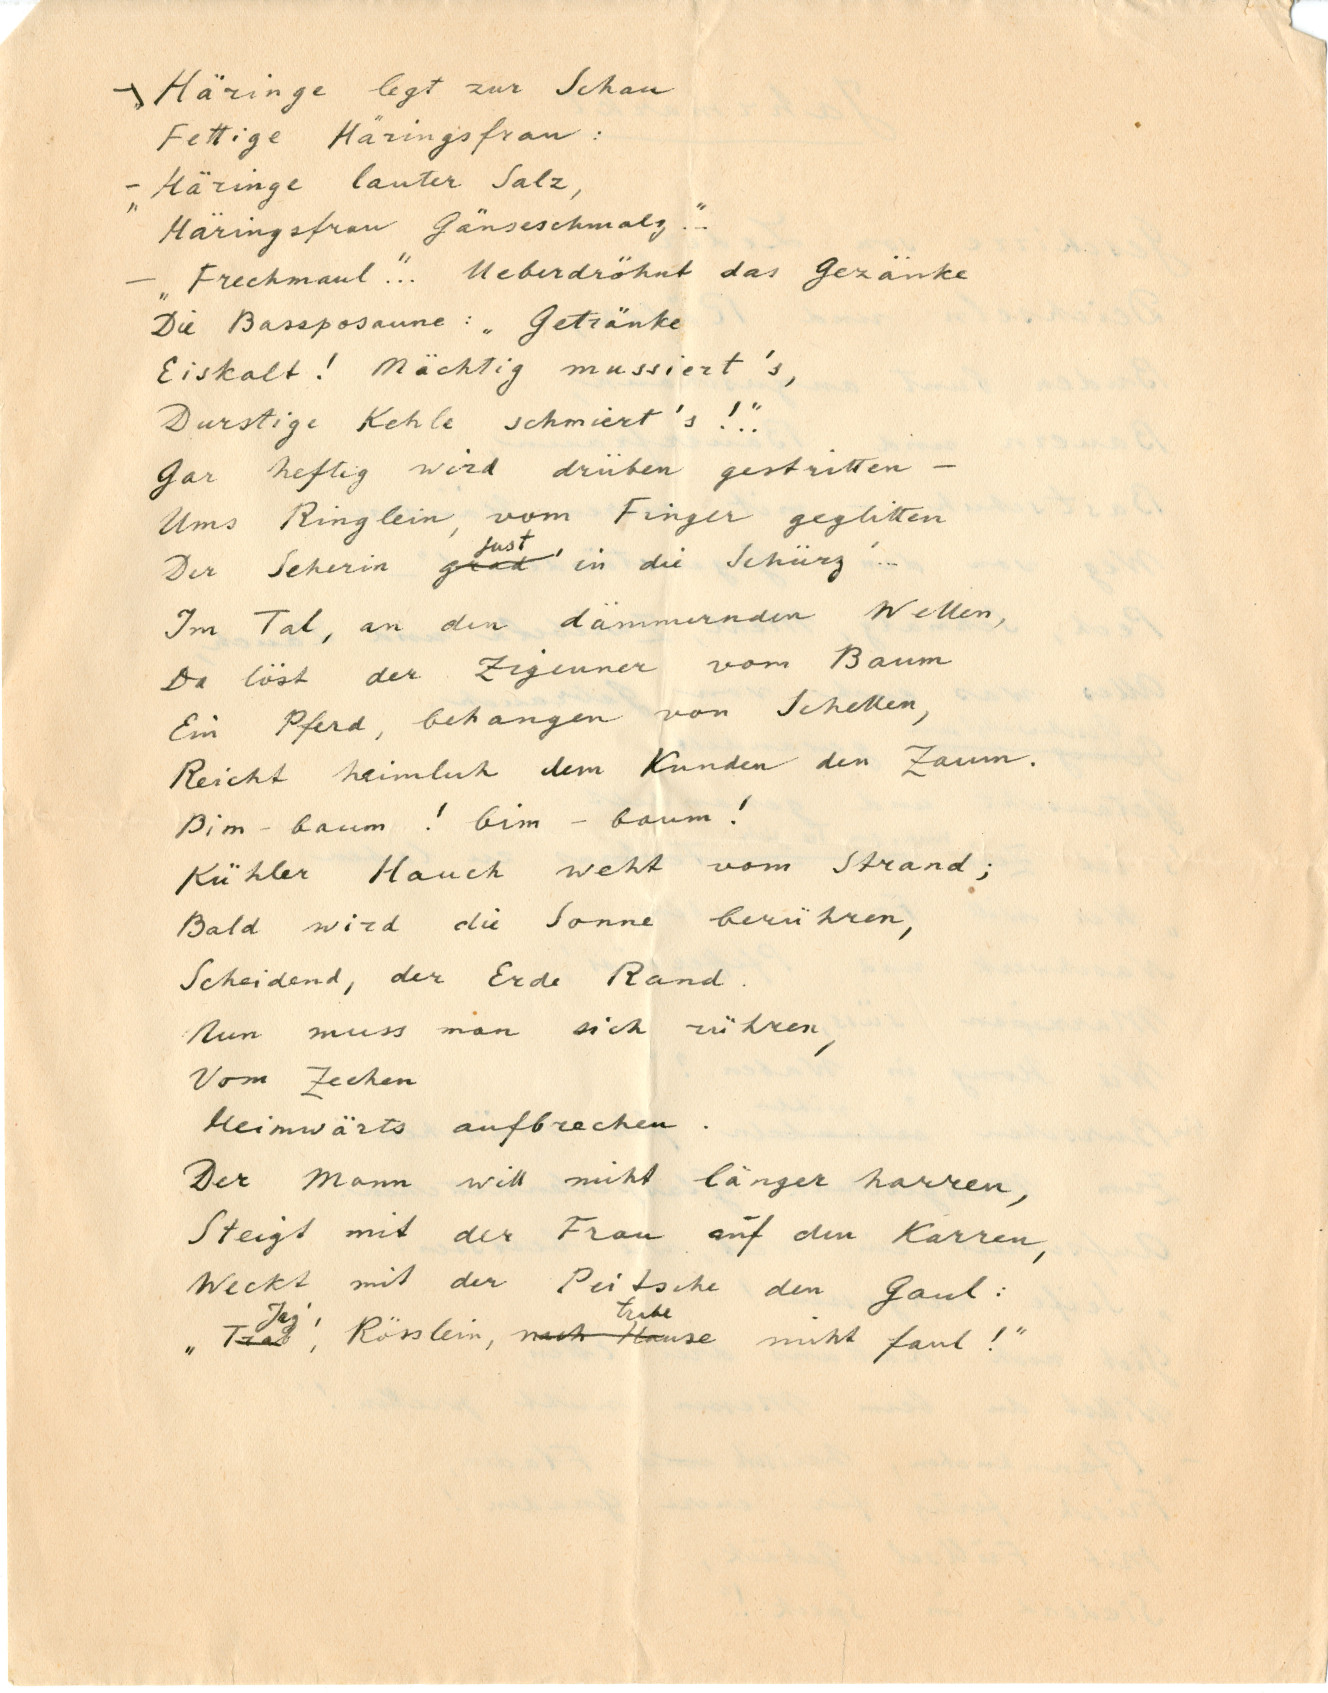 – „Häringe legt zur Schau
Fettige Häringsfrau:
– „Häringe lauter Salz,
Häringsfrau Gänseschmalz."..
– „Frechmaul"!.. Ueberdröhnt das Gezänke
Die Bassposaune: „Getränke
Eiskalt! Mächtig mussiert's,
Durstige Kehle schmiert's!"..
Gar heftig wird drüben gestritten –
Ums Ringlein, vom Finger geglitten
just
Der Seherin grad' in die Schürz'...
Im Tal, an den dämmernden Wellen,
Da löst der Zigeuner vom Baum
Ein Pferd, behangen von Schellen,
Reicht heimlich dem Kunden den Zaum.
Bim – baum! bim – baum!
Kühler Hauch weht vom Strand;
Bald wird die Sonne berühren,
Scheidend, der Erde Rand.
Nun muss man sich rühren,
Vom Zechen
Heimwärts aufbrechen.
Der Mann will nicht länger harren,
Steigt mit der Frau auf den Karren,
Weckt mit der Peitsche den Gaul:
Jag' trabe
„Trab', Rösslein, nach Hause nicht faul!"